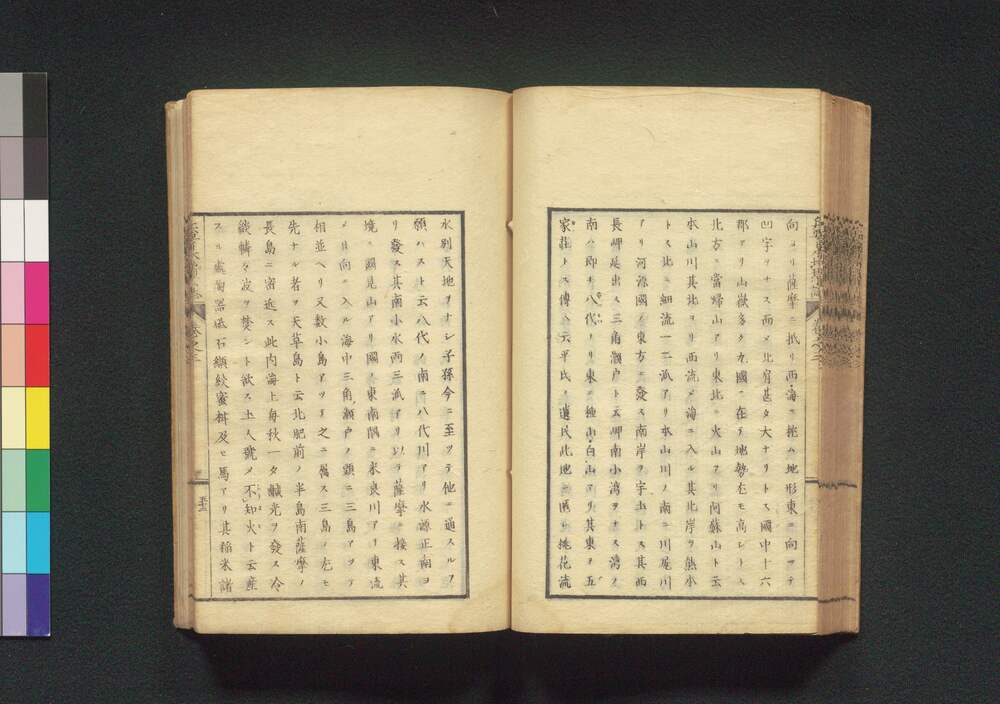 向ヨリ薩摩ニ抵リ西海ニ挑ム地形東ニ向ツテ
凹字ヲナス西メ北肩甚タ大ナリトス國中十六
郡アリ山嶽多ク九國ニ在テ地勢尤モ高シトス
北方ニ當帰山アリ東北ニ火山アリ阿蘇山ト云
本山川其北ヨリ西流メ海ニ入ル其北岸ヲ熊本
トス北ニ細流一二派アリ本山川ノ南ニ川尾川
アリ河源國ノ東方ニ發ス南岸ヲ宇土トス其西
長岬是出ス三角瀬戸ト云岬南小湾ヲナス湾ノ
南ハ即チ八代ナリ東ニ極山白山アリ其東ヲ五
家莊トス傳ヘ云平氏ノ遺民此地ニ匿レ桃花流
水別天地ヲナシ子孫今ニ至ツテ他ニ通スルヲ
願ハスト云八代ノ南ニ八代川アリ水源正南ヨ
リ發ス其南小水両三派アリ以テ薩摩ニ接ス其
境ニ國見山アリ國ノ東南隅ニ求良川アリ東流
メ日向ニ入ル海中三角瀬戸ノ頭ニ三島アツテ
相並ヘリ又数小島アツテ之ニ属ス三島ノ尤モ
先ナル者ヲ天草島ト云北肥前ノ半島南薩摩ノ
長島ニ密近ス此内海上毎秋一夕鹹光ヲ發ス冷
燄轔々寂ヲ焚ント欲ス土人號メ不知火ト云産
スル處陶器砥石纈絞蜜柑及ヒ馬アリ其稲米諸
卷之三